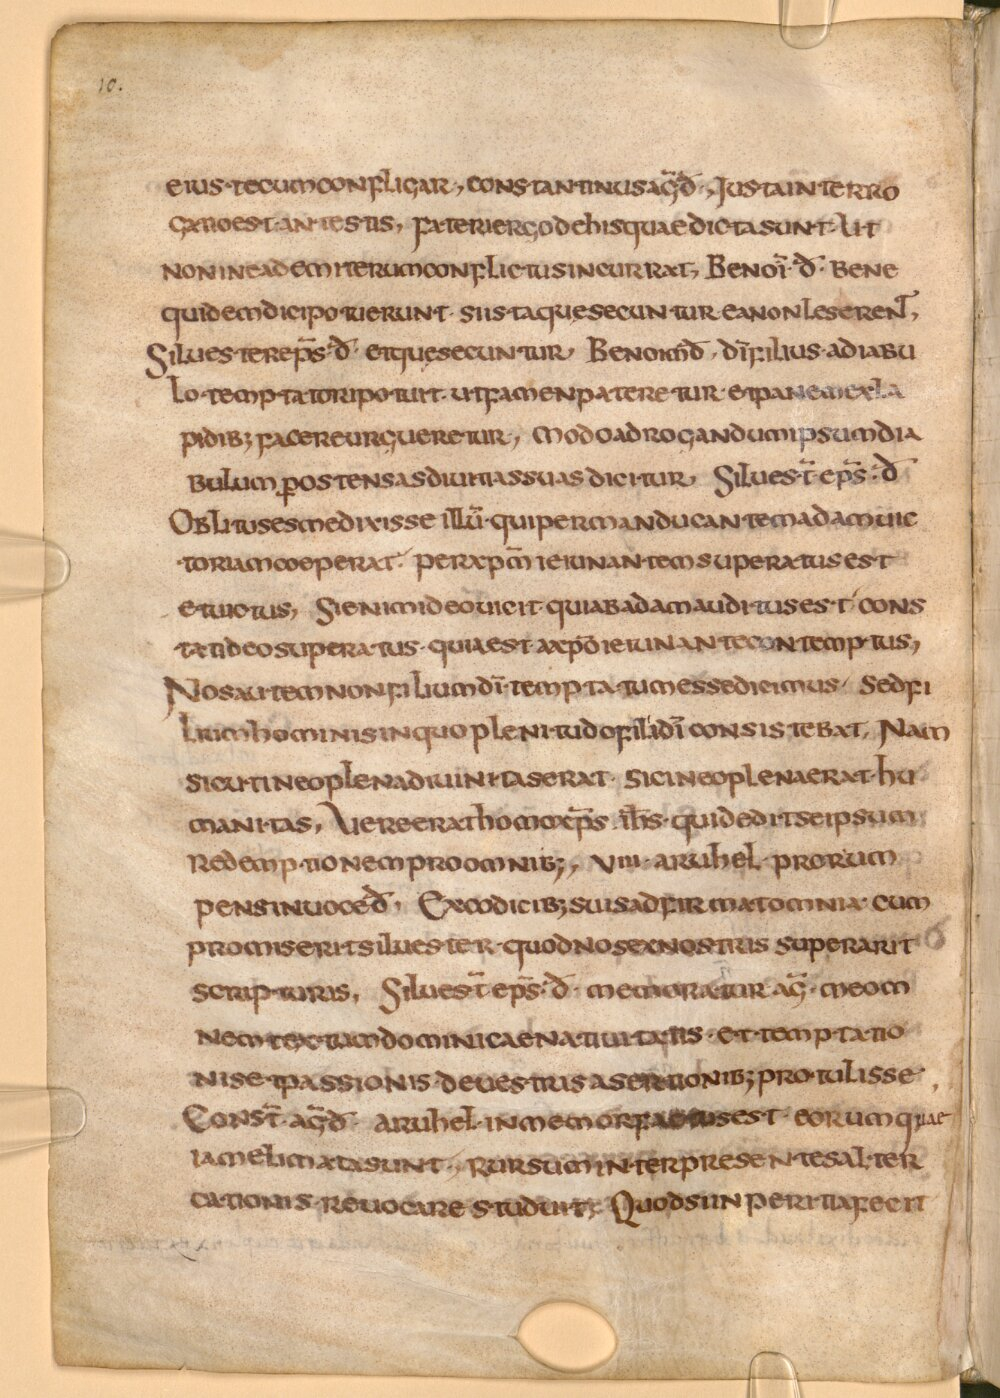 10.
eius·tecum confligar, constantinus aug̅ d̅, Justa interro
gatio est antestis, fateri ergo de his quae dicta sunt· Ut
non in eadem iterum conflictus incurrat, Benoi̅·d̅· bene
quidem dici potuerunt· si ista quę secuntur ea non lęserent,
Siluester ep̅s·d̅· et quę secuntur, Benoim d̅, di̅ filius·a diabu
lo·temptatori potuit· ut famen pateretur· et panem ex la
pidib; facere urgueretur, modo ad rogandum ipsum dia
bulum p ostensas diuitias suas dicitur, Siluest̅ ep̅s·d̅
Oblitus es me dixisse illu̅·qui per manducantem adam uic
toriam coeperat· per xp̅m ieiunantem superatus est
et uictus, Sienim ideo uicit·quia b adam auditus est· cons
tat ideo superatus·quia est a xp̅o ieiunante contemptus,
Nos autem non filium di̅·temptatum esse dicimus· Sed fi
lium hominis in quo plenitudo filii di̅ consistebat, Nam
sicuti in eo plena diuinitas erat· sic in eo plena erat·hu
manitas, Uere erat homo xp̅s ih̅s·qui dedit se ipsum
redemptionem pro omnib;, VIIII· aruhel·prorum
pens in uoce d̅, Ex codicib; suis adfirmat omnia· cum
promiserit siluester·quod nos ex nostris superarit
scripturis, Siluest̅ ep̅s·d̅· memoratur aug̅·me om
nem textum dominicae natiuitatis·et·temptatio
nis et passionis·de uestris asertionib; protulisse,
Const̅·aug̅ d̅· aruhel·inmemor factus est· eorum quae
iam elimata sunt, Rursum in·terpresentes alter
cationis·reuocare studuit; Quod si inperitia fecit